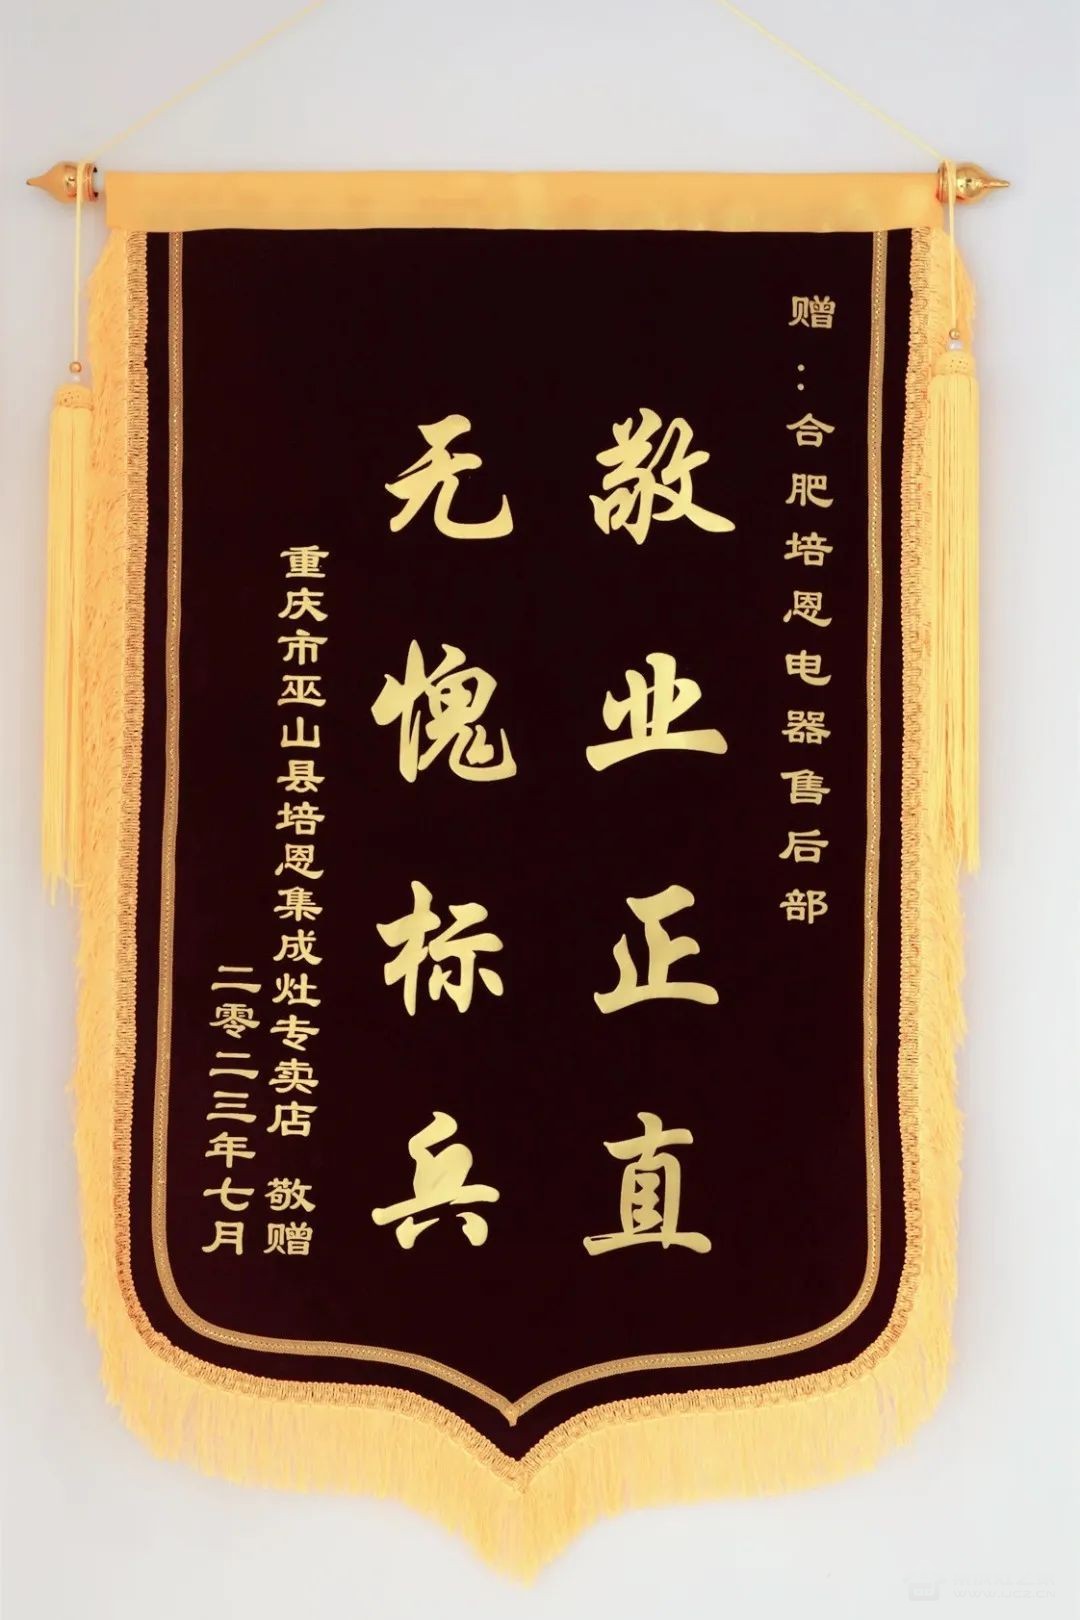 赠：合肥培恩电器售后部
敬业正直
无愧标兵
重庆市巫山县培恩集成灶专卖店 敬赠
二零二三年七月